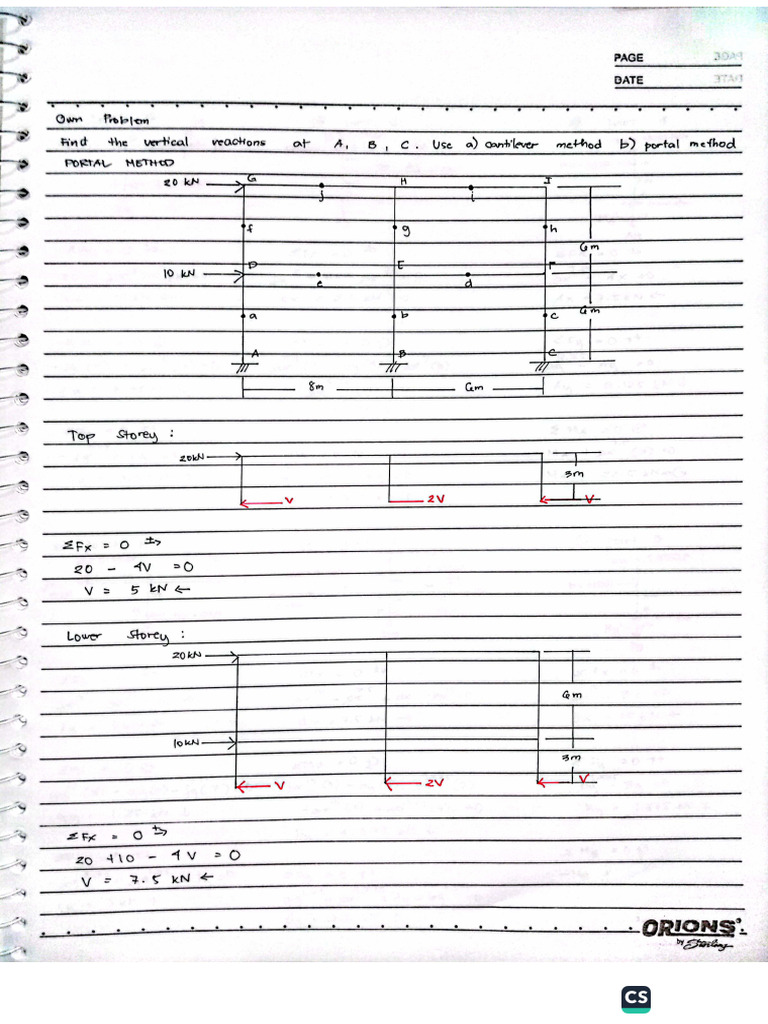 PAGE
DATE
Own Problem
Find the vertical reactions at A, B, C. Use a) cantilever method b) portal method
PORTAL METHOD
20 kN G H I
j i
f g h
6m
D E F
10 kN
e d
a b c 6m
A B C
8m 6m
Top Storey :
20kN
3m
V 2V V
ΣFx = 0 ±→
20 - 4V = 0
V = 5 kN ←
Lower Storey :
20kN
6m
10kN
3m
V 2V V
ΣFx = 0 ±→
20 +10 - 4V = 0
V = 7.5 kN ←
ORIONS
by Sterling
CS